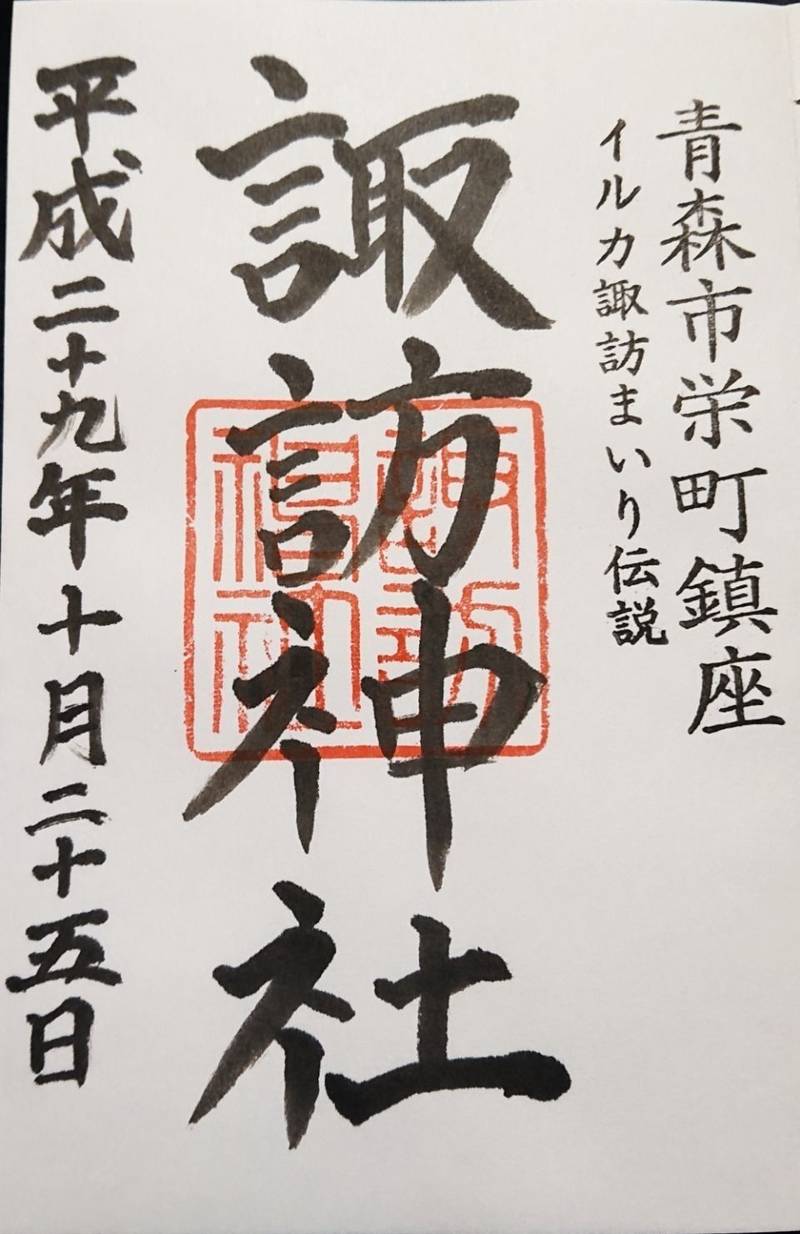 青森市栄町鎮座
イルカ諏訪まいり伝説
諏訪神社
諏訪神社
平成二十九年十月二十五日